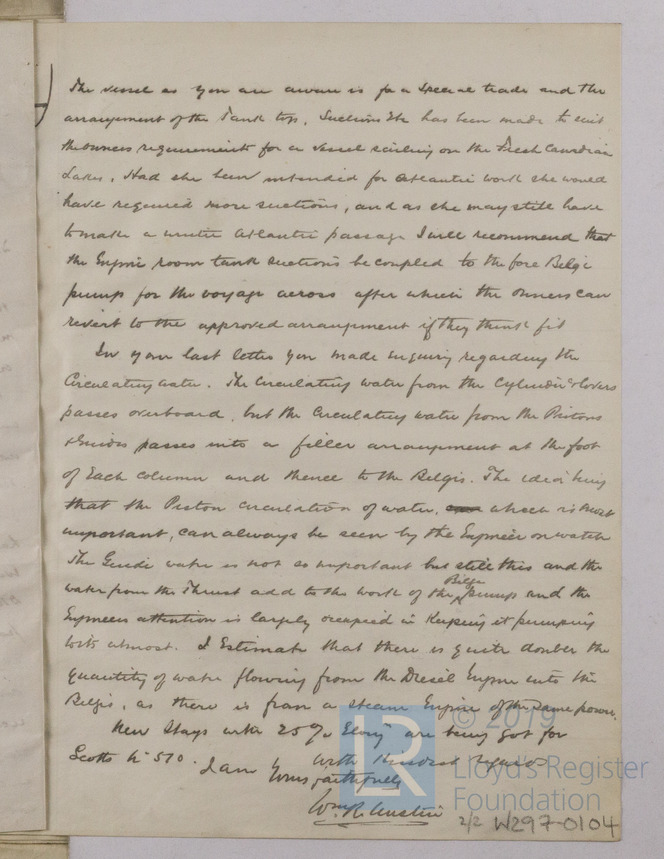 The vessel as you are aware is for a special trade and the
arrangement of the Tank tops, Suctions Etc has been made to suit
the owners requirements for a vessel sailing on the Fresh Canadian
Lakes. Had she been intended for Atlantic work she would
have required more suctions, and as she may still have
to make a winter Atlantic passage I will recommend that
the Engine room tank suctions be coupled to the fore Bilge
pump for the voyage across after which the owners can
revert to the approved arrangement if they think fit
In your last letter you made enquiry regarding the
Circulating water. The Circulating water from the Cylinder & Covers
passes overboard, but the Circulating water from the Pistons
& Guides passes into a filler arrangement at the foot
of Each Column and thence to the Bilges. The idea being
that the Piston circulation of water, which is most
important, can always be seen by the Engineer on watch
The Guide water is not so important but still this and the
water from the Thrust add to the work of the Bilge pumps and the
Engineers attention is largely occupied in Keeping it pumping
almost. I Estimate that there is quite double the
quantity of water flowing from the Diesel Engine into the
Bilges, as there is from a steam Engine of the same power.
New Stays with 25% Elong are being got for
Scotts No 510. With Kindest regards
I am Yours faithfully
Wm R. Austin
© 2019
Lloyd's Register
Foundation
LR
2/2 W297-0104